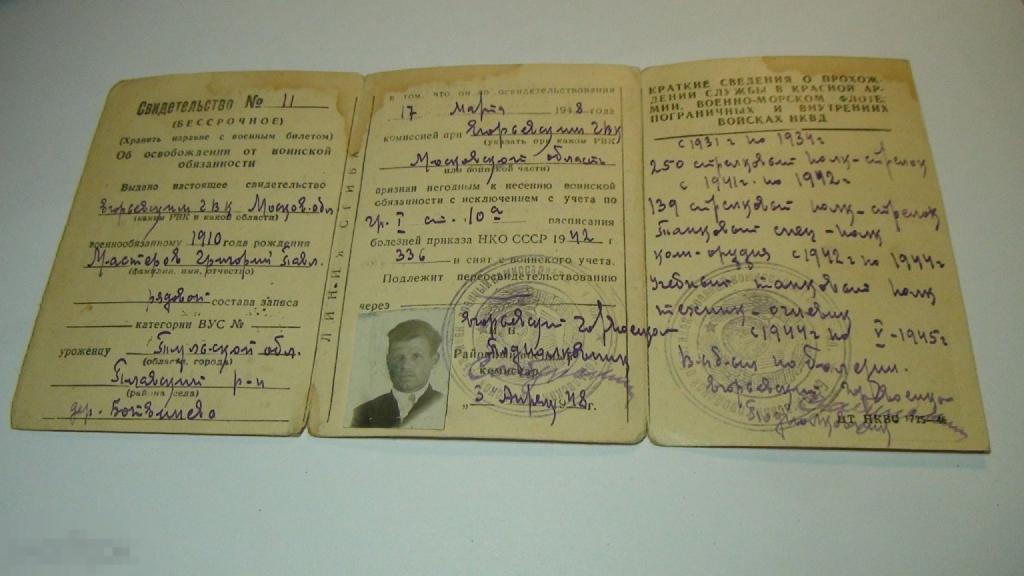 Свидетельство № 11
(БЕССРОЧНОЕ)
(Хранить наравне с военным билетом)
Об освобождении от воинской
обязанности
Выдано настоящее свидетельство
Егорьевским ГВК Москов. обл.
(каким РВК и какой области)
военнообязанному 1910 года рождения
Мастеров Григорий Павл.
(фамилия, имя, отчество)
рядовой состава запаса
категории ВУС №
уроженцу Тульской обл.
(область, город)
Плавский р-н
(района села)
дер.
ЛИНИЯ СГИБА
в том, что он по освидетельствовании
17 Марта 1948 года
комиссией при Егорьевским ГВК
(указать при каком РВК)
Московской область
или воинской части)
признан негодным к несению воинской
обязанности с исключением с учета по
гр. I ст. 10а расписания
болезней приказа НКО СССР 1942 г
336 и снят с воинского учета.
Подлежит переосвидетельствованию
через
Егорьевский Гор Военком
Подполковник
комиссар
„3 Апрец 48 г.
КРАТКИЕ СВЕДЕНИЯ О ПРОХОЖ-
ДЕНИИ СЛУЖБЫ В КРАСНОЙ АР-
МИИ, ВОЕННО-МОРСКОМ ФЛОТЕ,
ПОГРАНИЧНЫХ И ВНУТРЕННИХ
ВОЙСКАХ НКВД
с 1931 г по 1934 г
250 стрелковый полк-стрелок
с 1941 г. по 1942 г
139 стрелковый полк-стрелок
Танковый спец-полк
ком-орудия с 1942 г по 1944 г
Учебный танковый полк
с 1944 г по V-1945 г
по болезни.
Егорьевский Гор Военком